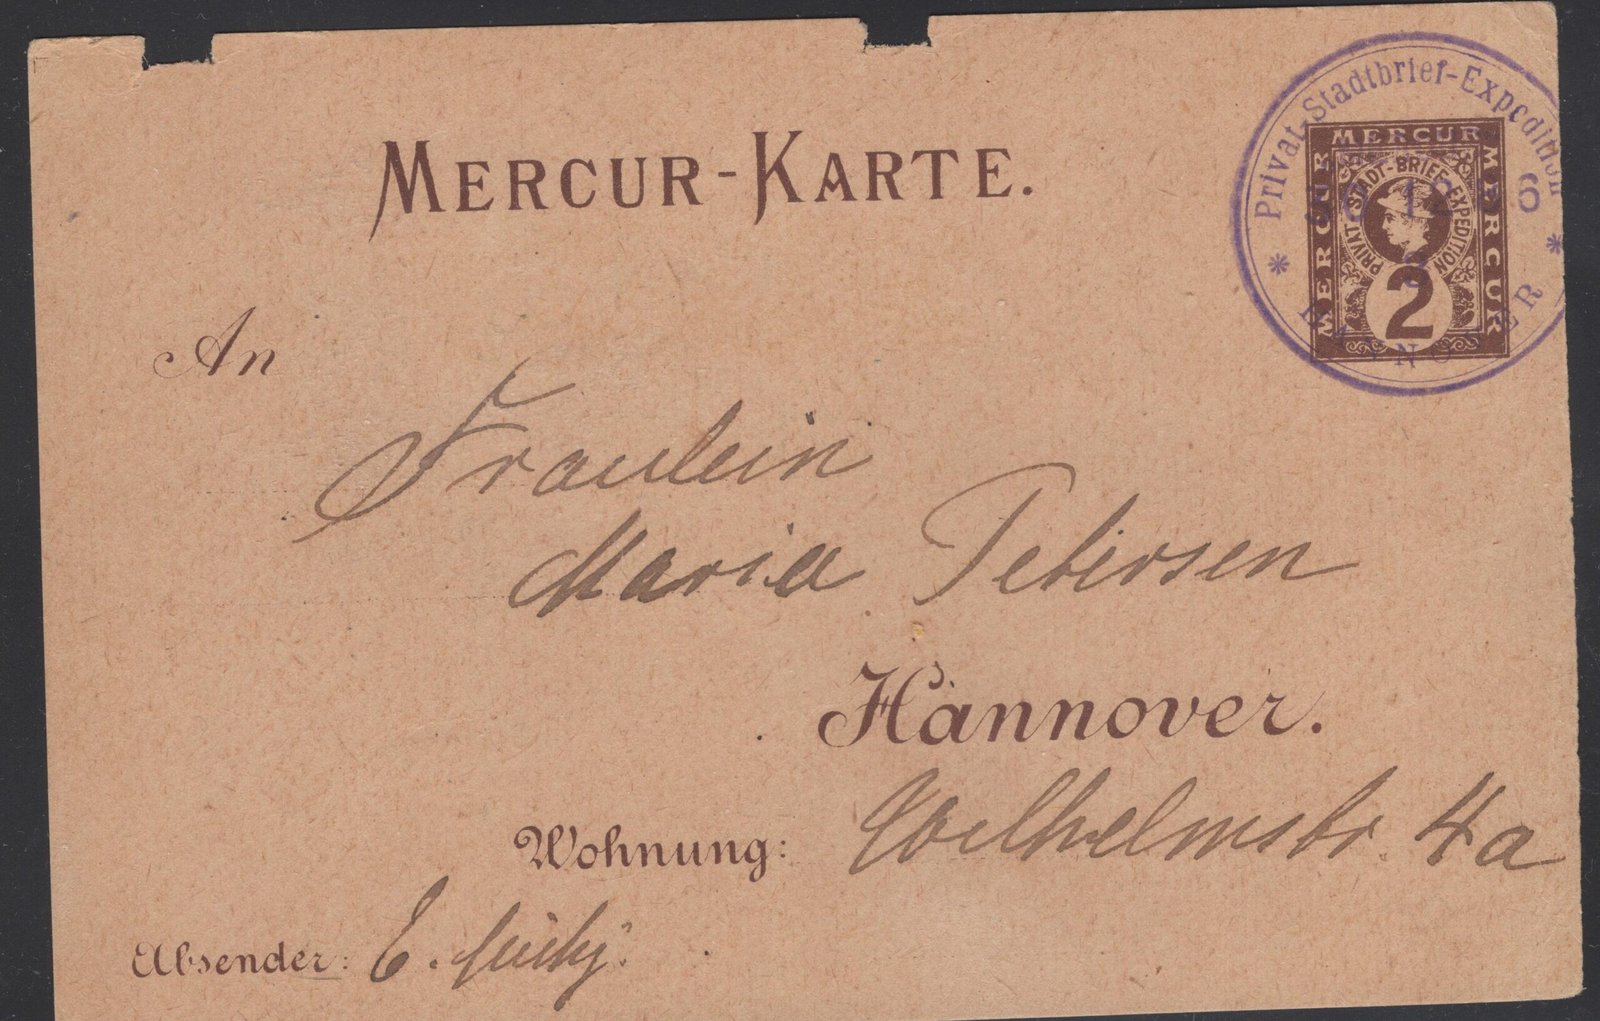 MERCUR-KARTE.
Privat-Stadtbrief-Expedition
* HANNOVER *
6
MERCUR
MERCUR
MERCUR
PRIVAT STADT-BRIEF-EXPEDITION
2
An
Fraulein
Maria Petersen
Hannover.
Wohnung: Wilhelmstr. 4a
Absender: E.